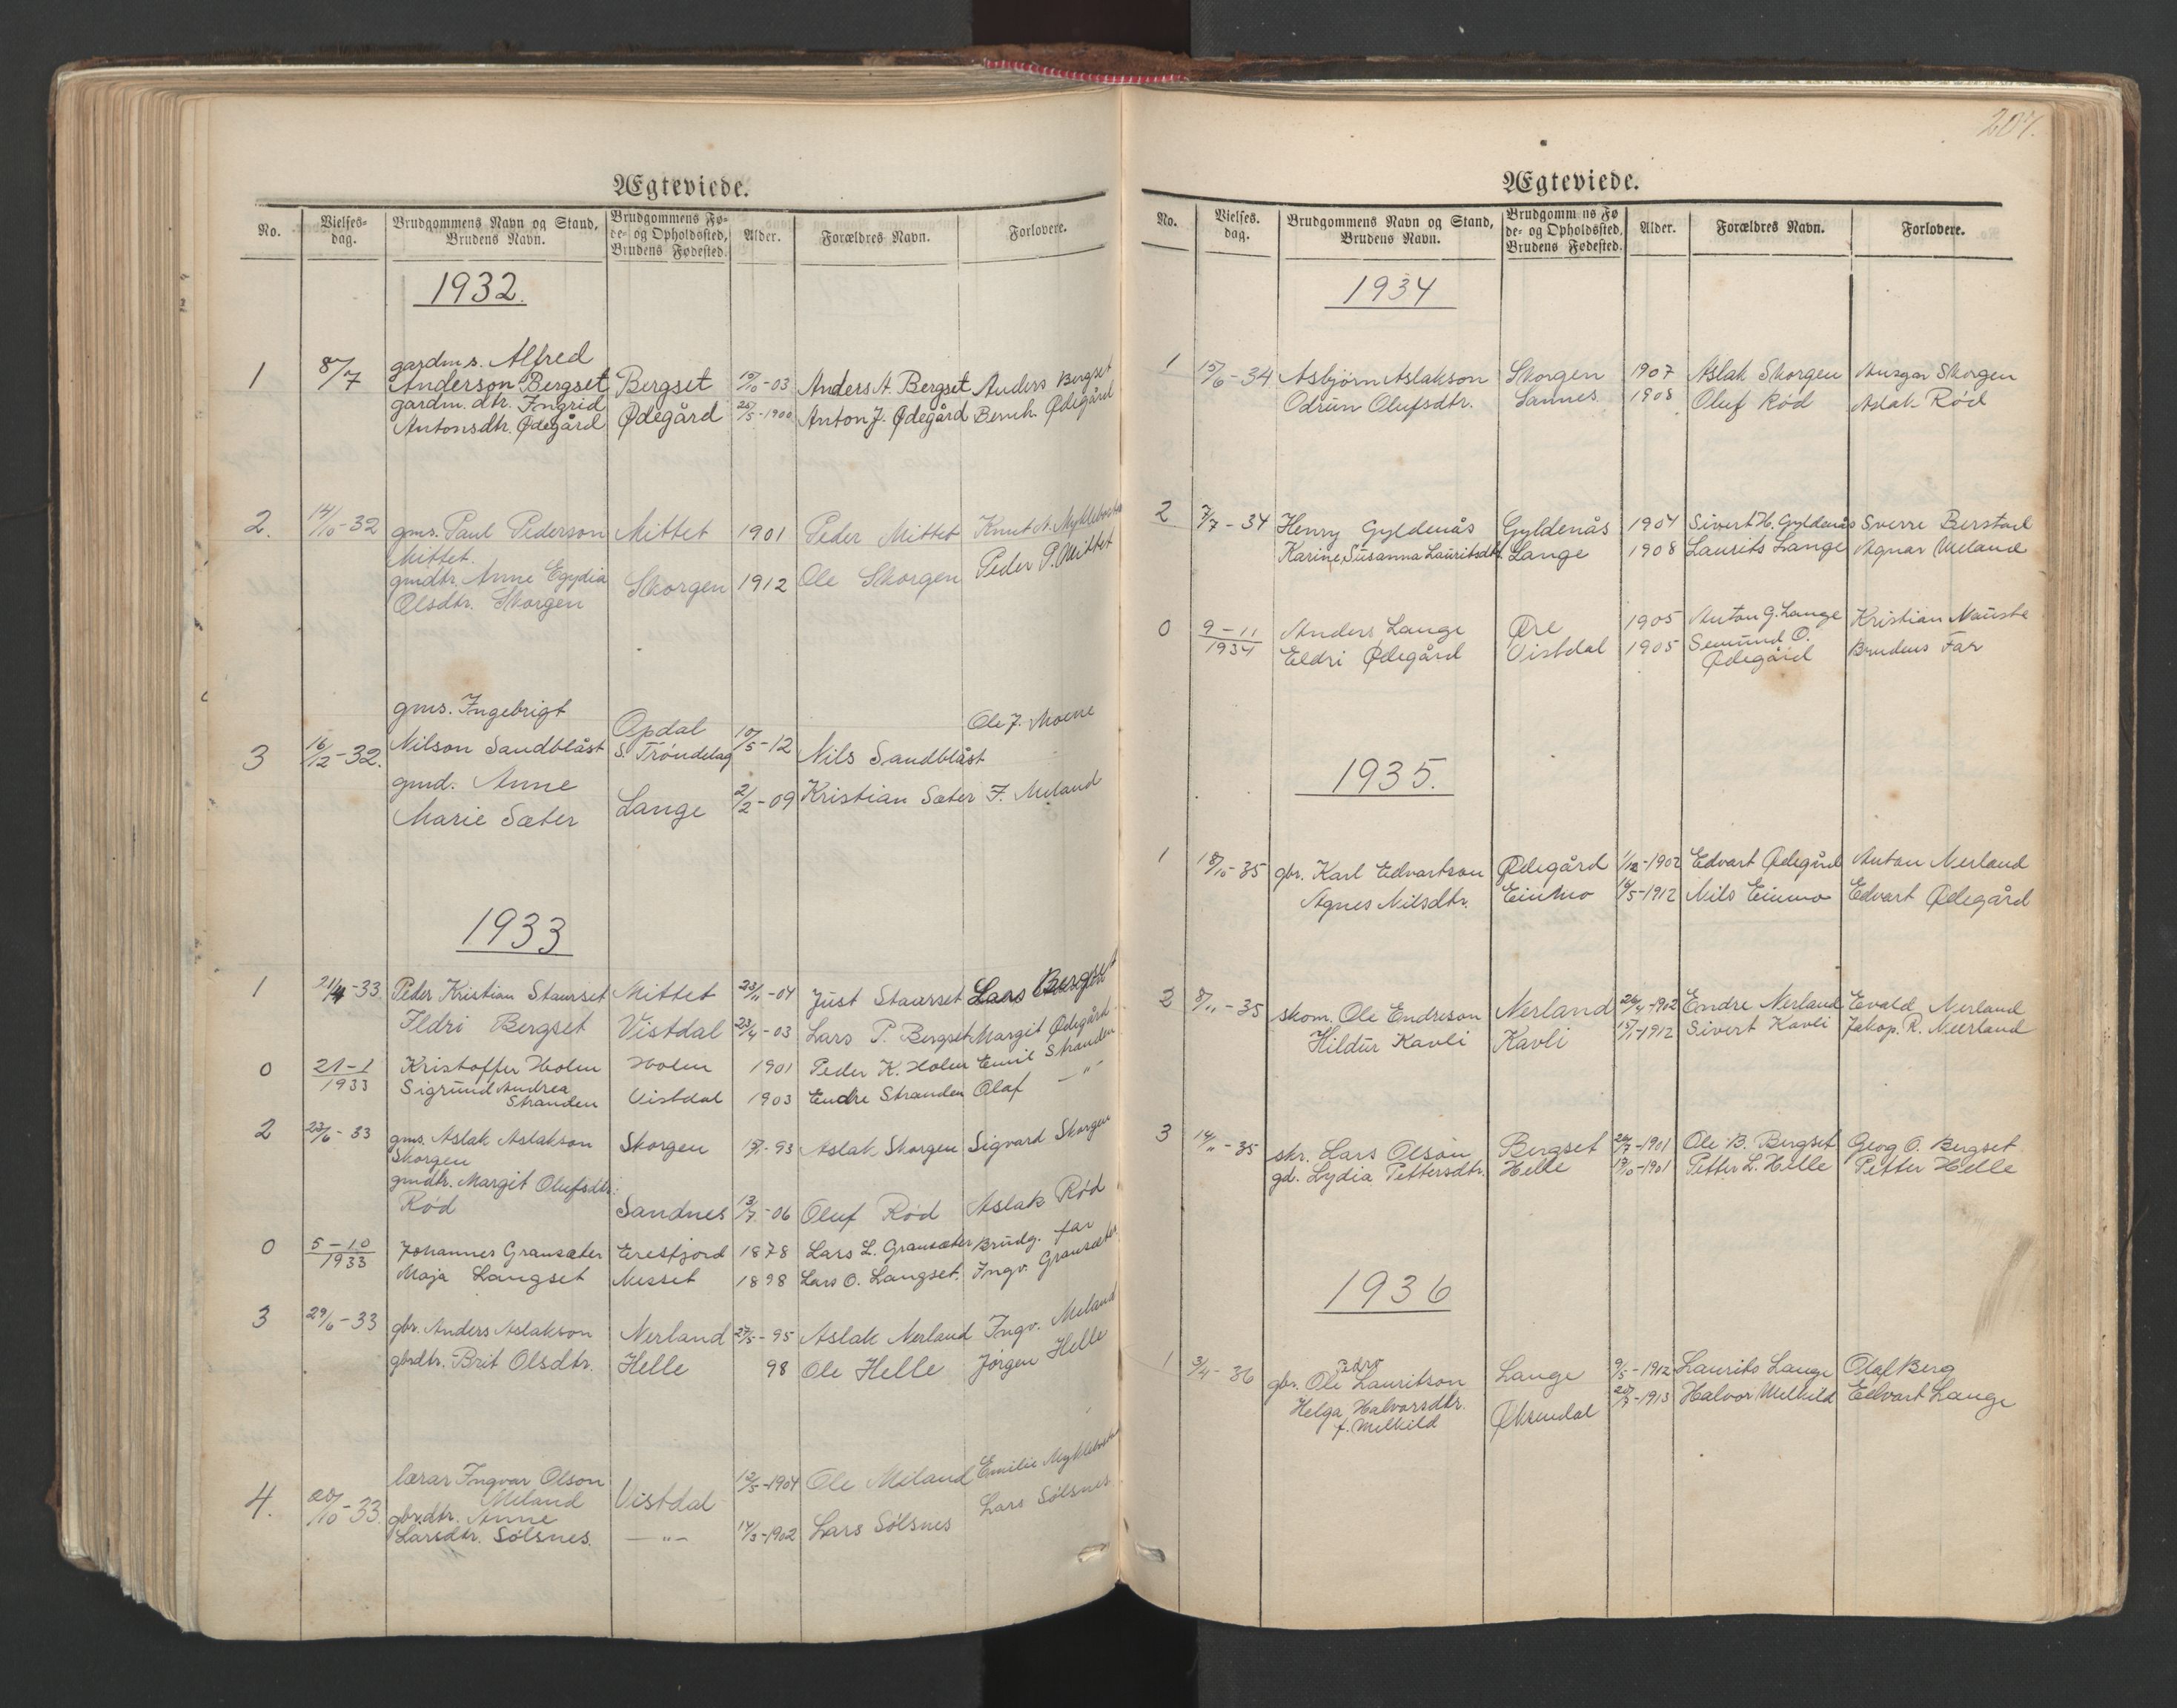 Ægteviede.
No. Vielses-dag. Brudgommens Navn og Stand, Brudens Navn. Brudgommens Fø-de- og Opholdssted, Brudens Fødested. Alder. Forældres Navn. Forlovere.
1932.
gardm.s. Alfred
1 8/7 Anderson Bergset Bergset -03 Anders A. Bergset Anders Bergset
gardm. dtr. Ingrid
Antonsdtr. Ødegård Ødegård -1900 Anton J. Ødegård Bernh. Ødegård
2. 14/10-32 gms. Paul Pederson Mittet 1901 Peder Mittet Knut A. Myklebostad
Mittet.
gmdtr. Anne Egydia Skorgen 1912 Ole Skorgen Peder P. Mittet
Olsdtr. Skorgen
gms. Ingebrigt Opdal Ole J. Moene
3 16/12-32. Nilson Sandblåst S. Trøndelag 10/5-12 Nils Sandblåst
gmd. Anne
Marie Sæter Lange 2/2-09 Kristian Sæter F. Meland
1933
1 21/4-33 Peder Kristian Staurset Mittet 23/11-04 Just Staurset Lars Bergset
Ildri Bergset Vistdal 23/4-03 Lars P. Bergset Margit Ødegård
0 21-1 1933 Kristoffer Holm Holm 1901 Peder K. Holm Emil Stranden
Sigrund Andrea
Stranden Vistdal 1903 Endre Stranden Olaf —"—
2 23/6-33 gms. Aslak Aslakson Skorgen -93 Aslak Skorgen Sigvard Skorgen
Skorgen
gmdtr. Margit Olufsdtr.
Rød Sandnes 13/7-06 Oluf Rød Aslak Rød
0 5-10 1933 Johannes Gransæter Eresfjord 1878 Lars L. Gransæter Brudg. far
Maja Langset Nesset 1898 Lars O. Langset. Ingv. Gransæter
3 29/6-33 gbr. Anders Aslakson Nerland 27/5-95 Aslak Nerland Ingv. Meland
gbrdtr. Brit Olsdtr. Helle 98 Ole Helle Jørgen Helle
lærar Ingvar Olson
Meland Vistdal 12/5-1904 Ole Meland Emilie Myklebostad
4. 20/10-33. gbrdtr. Anne
Larsdtr. Sølsnes. —"— 14/3-1902 Lars Sølsnes Lars Sølsnes
207.
Ægteviede.
No. Vielses-dag. Brudgommens Navn og Stand, Brudens Navn. Brudgomm ns Fø de- og Opholdssted, Brudens Fødested. Alder. Forældres Navn. Forlovere.
1934
1 15/6-34 Asbjørn Aslakson Skorgen 1907 Aslak Skorgen Ansgar Skorgen
Odrun Olufsdtr. Sannes 1908 Oluf Rød Aslak Rød
2 7/7-34 Henry Gyldenås Gyldenås 1904 Sivert H. Gyldenås Sverre Berstad
Karine Susanna Lauritsdtr. Lange 1908 Laurits Lange Agnar Meland
0 9-11 1934 Anders Lange Øre 1905 Anton G. Lange Kristian Nauste
Eldri Ødegård Vistdal 1905 Semund O. Ødegård Brudens Far
1935.
1 18/10-35 gbr. Karl Edvartson Ødegård 1/12-1902 Edvart Ødegård Anton Nerland
Agnes Nilsdtr. Einmo 14/5-1912 Nils Einmo Edvart Ødegård
2 8/11-35 skom. Ole Endreson Nerland 26/4-1902 Endre Nerland Evald Nerland
Hildur Kavli Kavli -1912 Sivert Kavli Jakop. R. Neerland
3 14/11-35 skr. Lars Olson Bergset -1901 Ole B. Bergset Geog O. Bergset
gd. Lydia Pettersdtr. Helle -1901 Petter L. Helle Petter Helle
1936
1 3/4-36 gbr. Ole Pedro Lauritson Lange 9/5-1912 Laurits Lange Olaf Berg
Helga Halvorsdtr. Øksendal -1913 Halvor Melkild Edvart Lange
f. Melkild